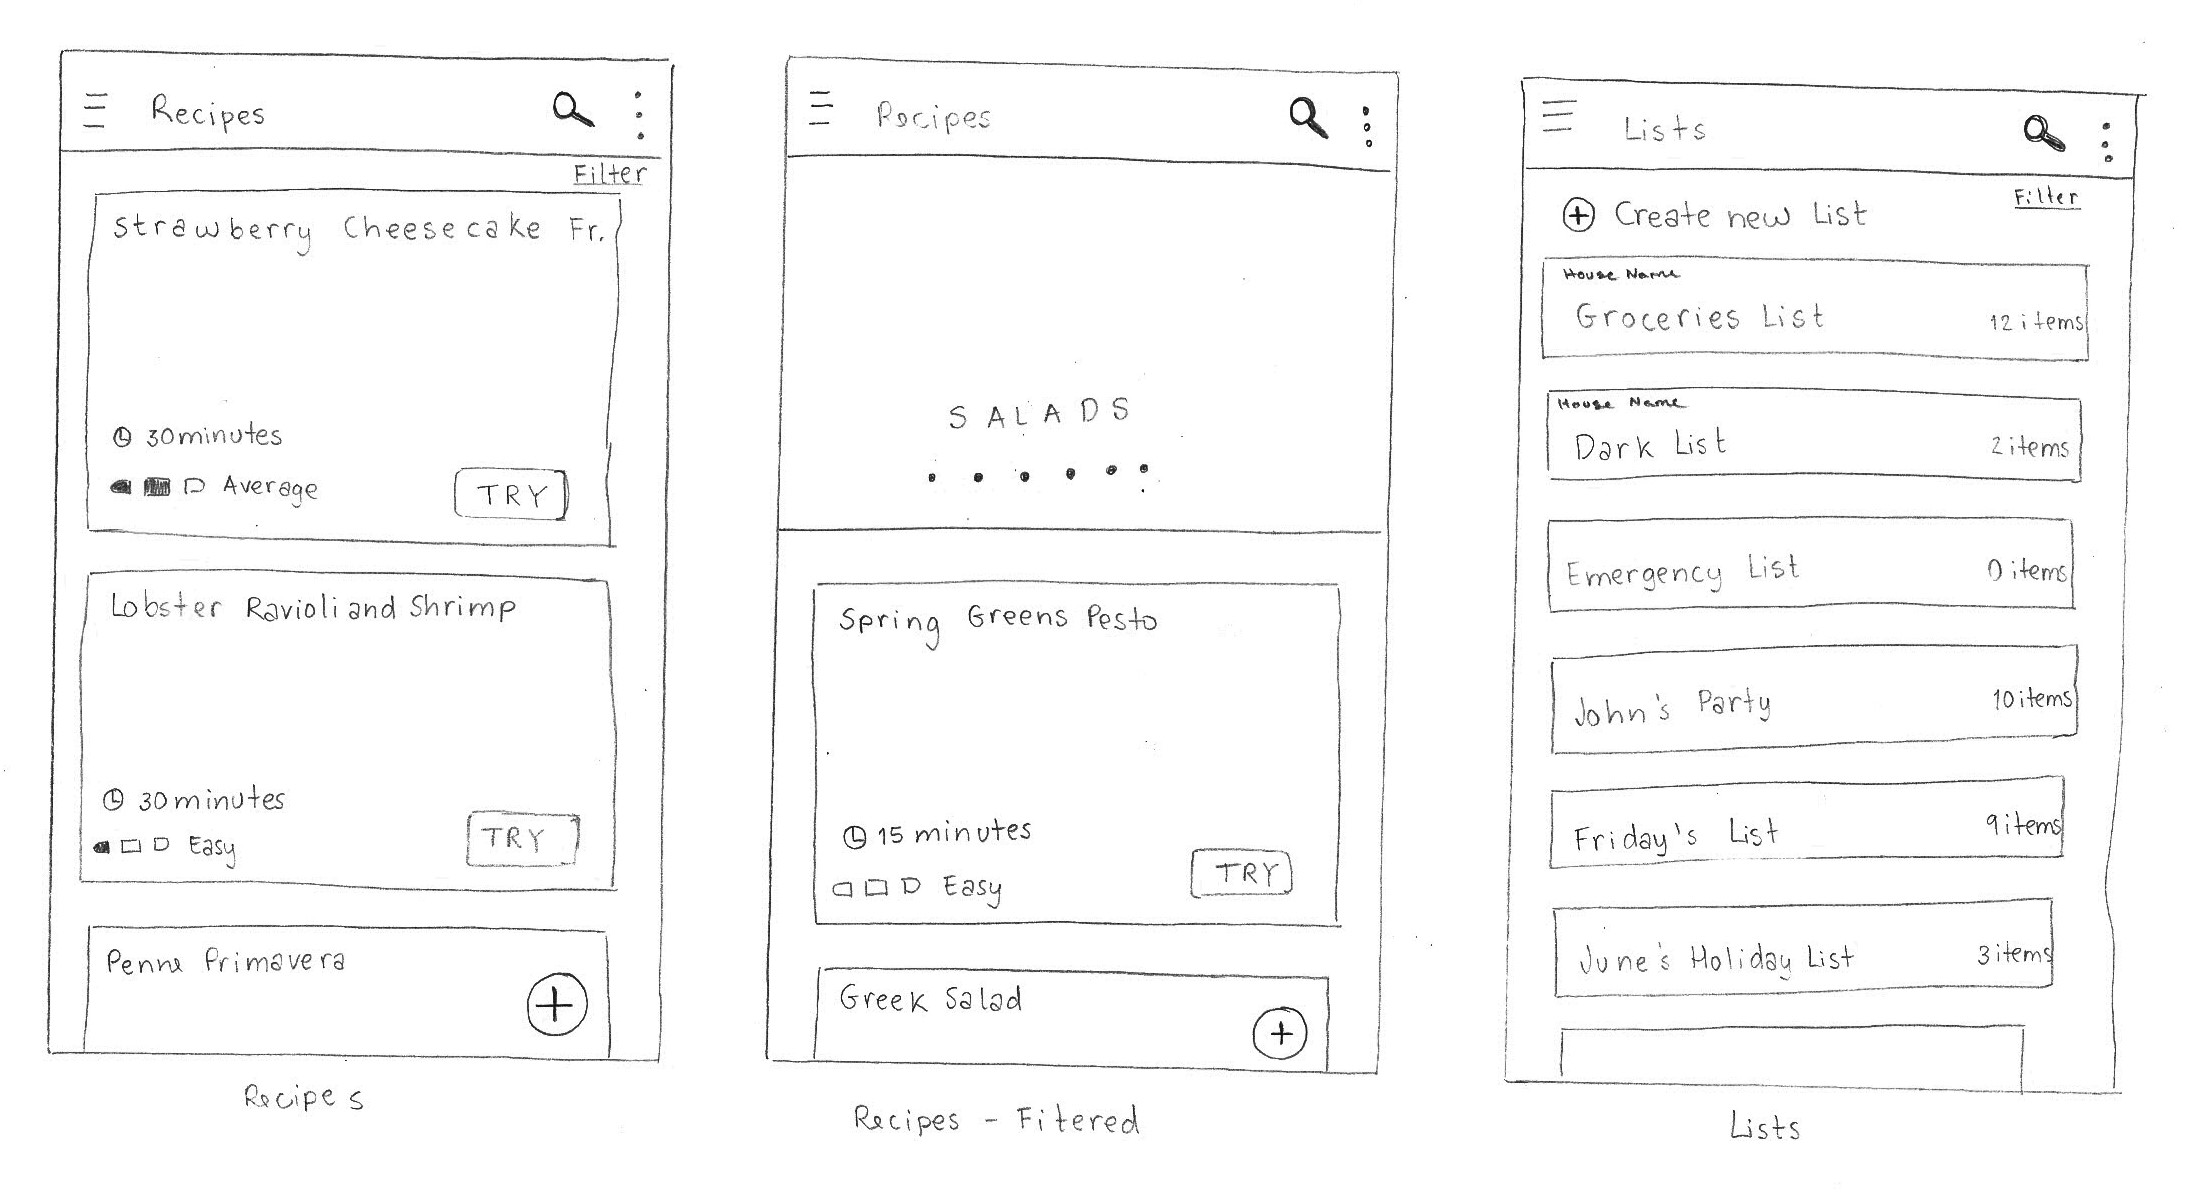 Recipes
Filter
Strawberry Cheesecake Fr.
30 minutes
Average
TRY
Lobster Ravioli and Shrimp
30 minutes
Easy
TRY
Penne Primavera
Recipes
Recipes
SALADS
Spring Greens Pesto
15 minutes
Easy
TRY
Greek Salad
Recipes - Fitered
Lists
Filter
Create new List
House Name
Groceries List
12 items
House Name
Dark List
2 items
Emergency List
0 items
John's Party
10 items
Friday's List
9 items
June's Holiday List
3 items
Lists